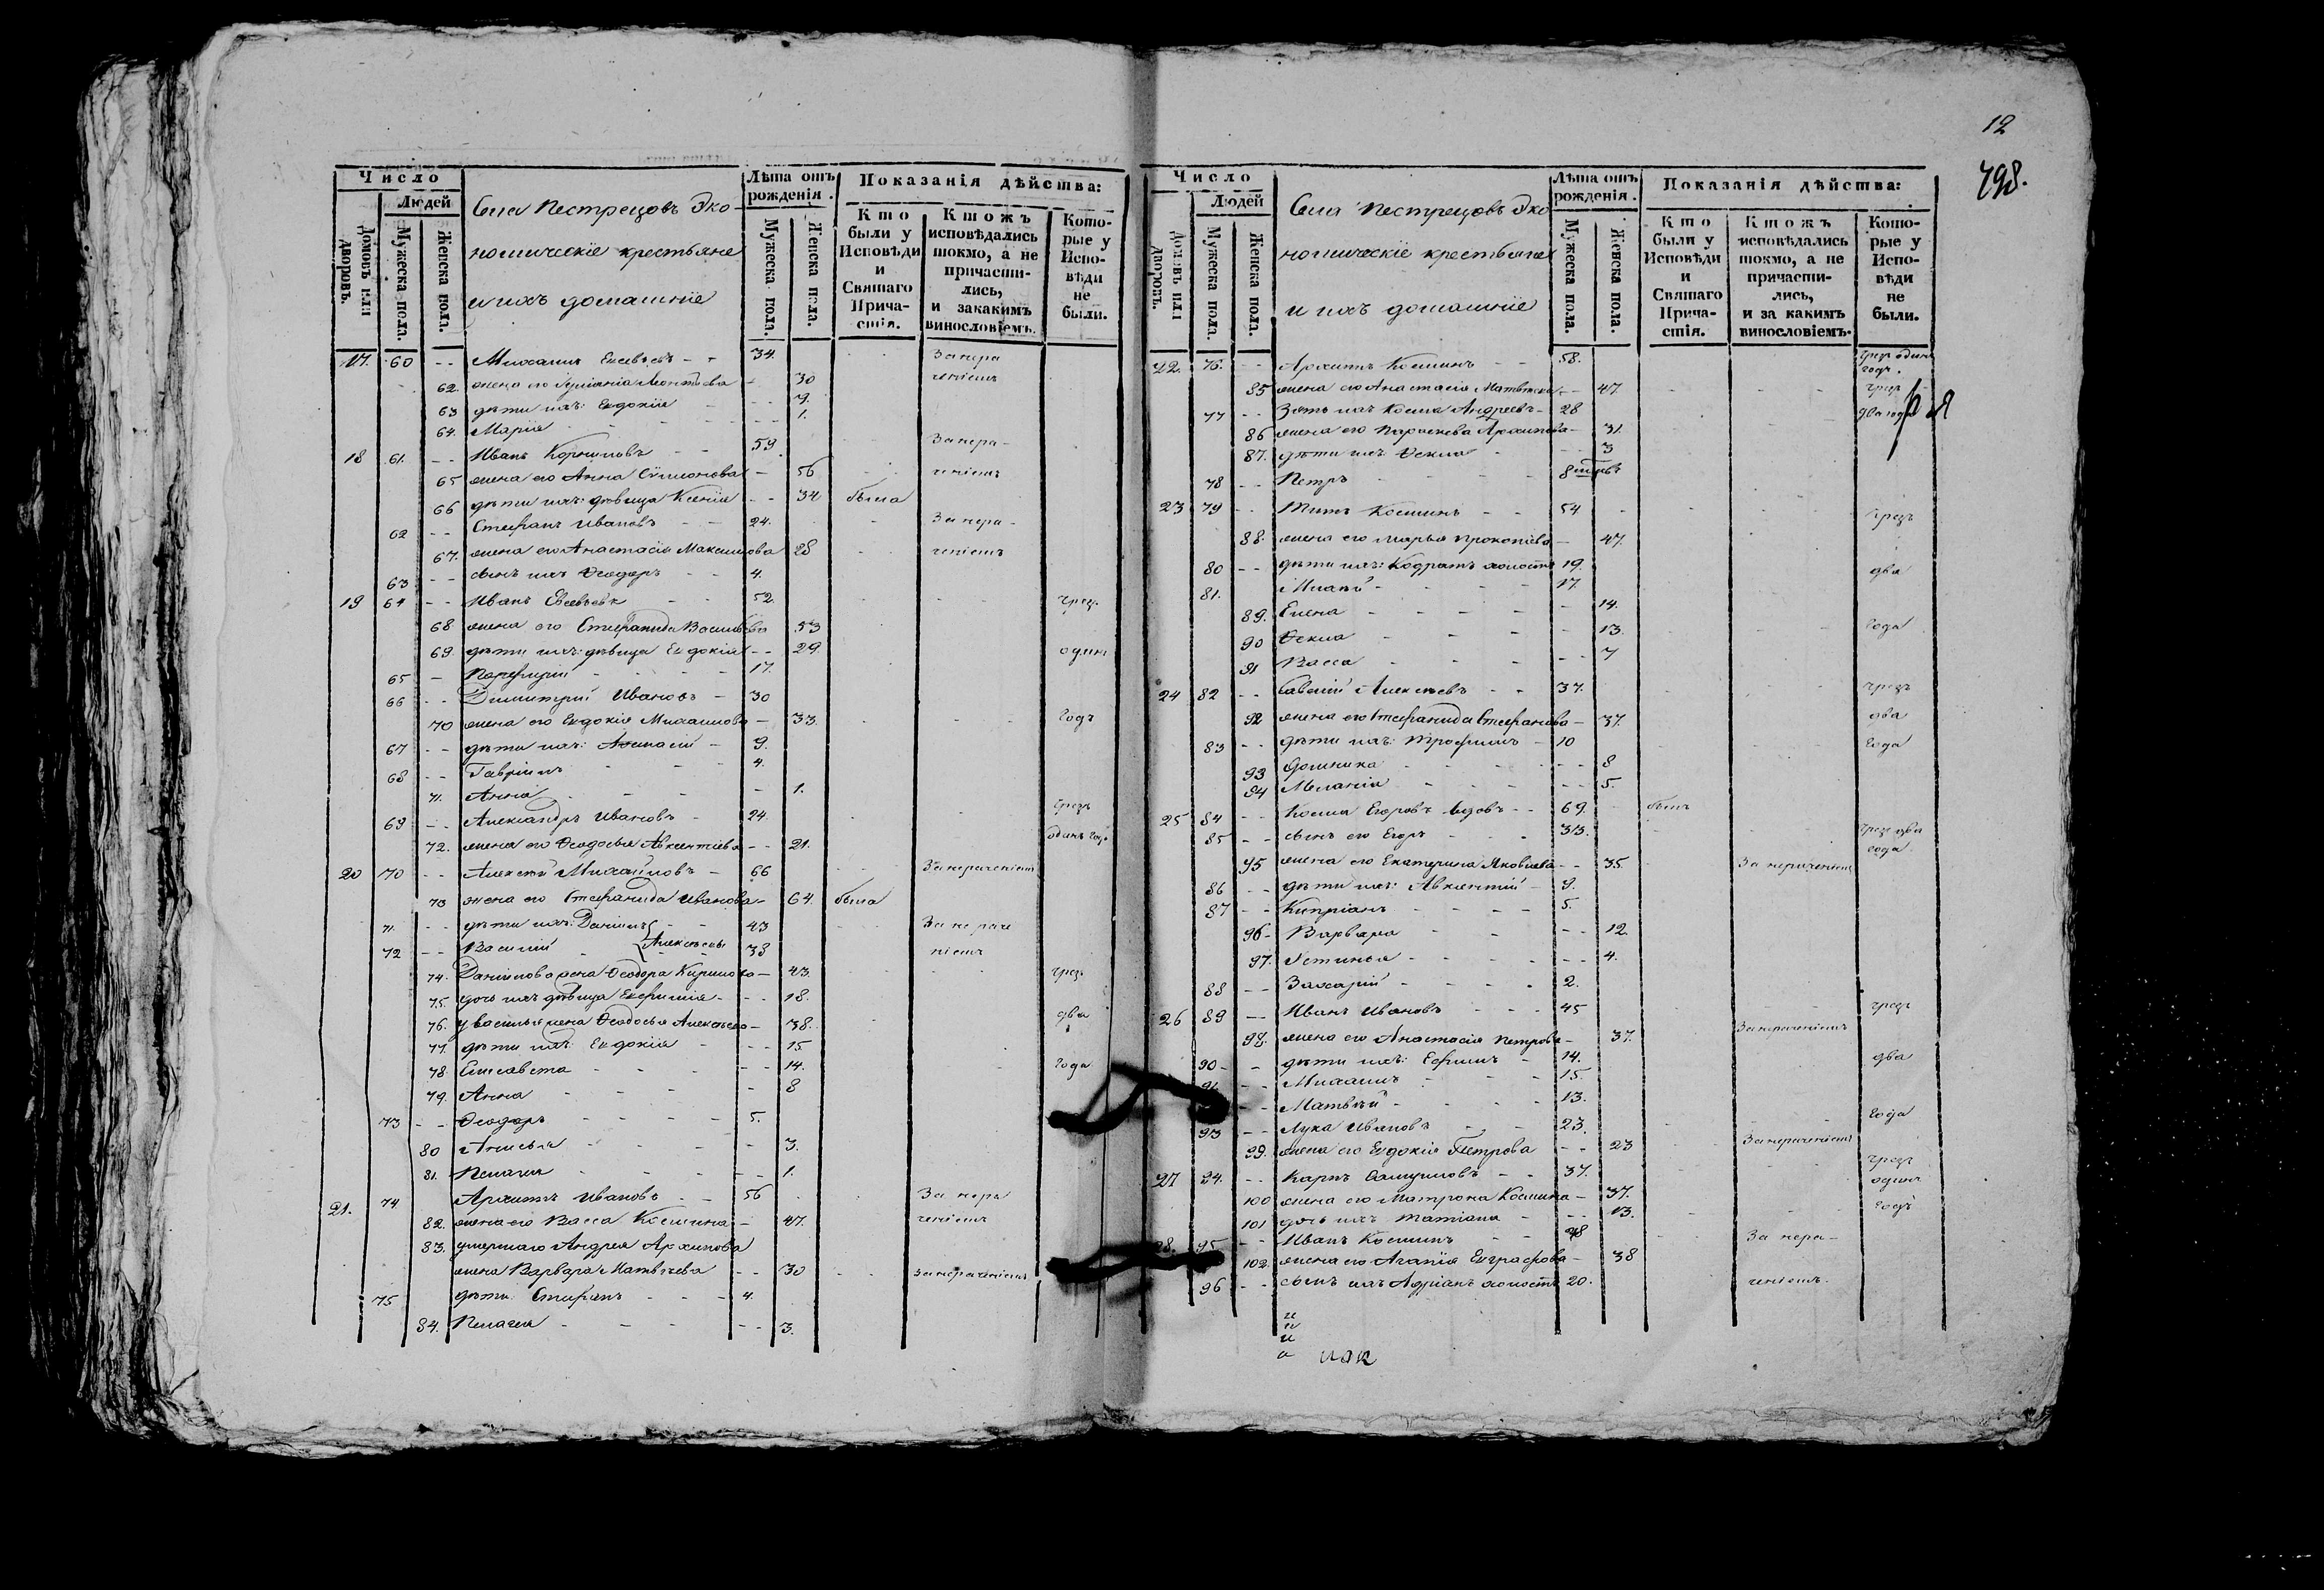 12
498.
Число
Людей
Домовъ или дворовъ.
Мужеска пола.
Женска пола.
Села Пестрецовъ Эко-
номическіе крестьяне
и ихъ домашніе
Лѣта отъ рожденія.
Мужеска пола.
Женска пола.
Показанія дѣйства:
Кто были у Исповѣди и Святаго Причастія.
Ктожъ исповѣдались токмо, а не причасти-лись, и закакимъ винословіемъ.
Кото-рые у Испо-вѣди не были.
17. 60 -- Михаилъ Евсевьевъ -- 34. За нера
62. жена его Леонтьева - 30 ченіемъ
63 дѣти ихъ: Евдокія - -- 7.
64. Марія - - - -- 1.
18 61. -- Иванъ Корниловъ -- 59. За нера-
65 жена его Анна Симионова - 56 ченіемъ
66 дѣти ихъ: дѣвица Ксенія -- 34 была
62 -- Стефанъ Ивановъ -- 24. За нера-
67. жена его Анастасія Максимова 28 ченіемъ
63 -- сынъ ихъ Ѳеодоръ -- 4.
19 64 -- Иванъ Евсевьевъ -- 52. чрез.
68 жена его Стефанида Васильева 53
69. дѣти ихъ: дѣвица Евдокія -- 29. одинъ
65 - Порфирій - - - 17.
66 -- Димитрий Ивановъ - 30
70 жена его Евдокія Михаилова - 33. годъ
67 -- дѣти ихъ: Афанасій - 9.
68 -- Гавріилъ - - - 4.
71. Анна - - - 1.
69 -- Александръ Ивановъ - 24. чрезъ
72. жена его Ѳеодосья Авксентіева -- 21. одинъ годъ
20 70 -- Алексѣй Михайловъ - 66 За нераченіемъ
73 жена его Стефанида Иванова - 64. была
71. -- дѣти ихъ: Даніилъ - 43 За нераче
72 -- Василій Алексѣевы 38 ніемъ
74. Даніилова жена Ѳеодора Кирилова - 43. чрезъ
75. дочь ихъ дѣвица Евфимія - -- 18.
76. у Василья жена Ѳеодосья Алексѣева - 38. два
77. дѣти ихъ: Евдокія - -- 15
78. Елисавета - - -- 14. года
79. Анна - - - - 8
73 -- Ѳеодоръ - - - - 5.
80 Анисья - - - - 3.
81. Пелагея - - - -- 1.
21. 74 Архиппъ Ивановъ -- 56 За нера
82. жена его Васса Космина - 47. ченіемъ
83. умершаго Андрея Архипова
жена Варвара Матвѣева -- 30 За нераченіемъ
75 дѣти: Стефанъ - - - 4.
84. Пелагея - - - -- 3.
Число
Людей
Домовъ или дворовъ.
Мужеска пола.
Женска пола.
Села Пестрецовъ Эко
номическіе крестьяне
и ихъ домашніе
Лѣта отъ рожденія.
Мужеска пола.
Женска пола.
Показанія дѣйства:
Кто были у Исповѣди и Святаго Прича-стія.
Ктожъ исповѣдались токмо, а не причасти-лись, и за какимъ винословіемъ.
Кото-рые у Испо-вѣди не были.
22. 76. -- Архиппъ Косминъ -- 58. чрез один годъ.
85 жена его Анастасія Матвѣева -- 47. чрез
77 -- Зять ихъ Косма Андреевъ - 28 два года
86 жена его Параскева Архипова - 31.
87. дѣти ихъ Ѳекла - -- 3
78 -- Петръ - - - -
23 79 -- Титъ Косминъ -- 54. чрезъ
88. жена его Марья Прокопіева - 47.
80 -- дѣти ихъ: Кодратъ холостъ 19. два
81. - - - 17.
89. Елена - - - - - 14.
90 Ѳекла - - - - 13. года
91 Васса - - - -- 7
24 82 -- Савелій Алексѣевъ -- 37. чрезъ
92 жена его Стефанида Стефанова - 37. два
83 -- дѣти ихъ: Трофимъ - 10 года
93 Домника - - - -- 8
94 Меланія - - - -- 5.
25 84 -- Косма Егоровъ вдовъ -- 69. былъ
85 -- сынъ его Егоръ - - - 33. чрез два года
95 жена его Екатерина Яковлева -- 35. За нераченіемъ
86 -- дѣти ихъ: Авксентій - 9.
87 -- Кипріанъ - - - - 5.
96- Варвара - - - -- 12.
97. Устинья - - - -- 4.
88 -- Захарій - - - - 2.
26 89 -- Иванъ Ивановъ - - - 45 чрезъ
98. жена его Анастасія Петрова - 37. За нераченіемъ
90- - дѣти ихъ: Ефимъ - 14. два
91 -- Михаилъ - - - 15.
-- Матвѣй - - - - 13.
93 -- Лука Ивановъ - - 23. года
99. жена его Евдокія Петрова -- 23 За нераченіемъ
27 94. -- Карпъ Самуиловъ -- 37. чрезъ один
100 жена его Матрона Космина - 37.
101 дочь ихъ Татіана - -- 13. годъ
28. 95 -- Иванъ Косминъ -- 48 За нера-
102 жена его Агапія Евграфова - 38
96 -- сынъ ихъ Адріанъ холостъ 20. ченіемъ.